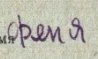 феня